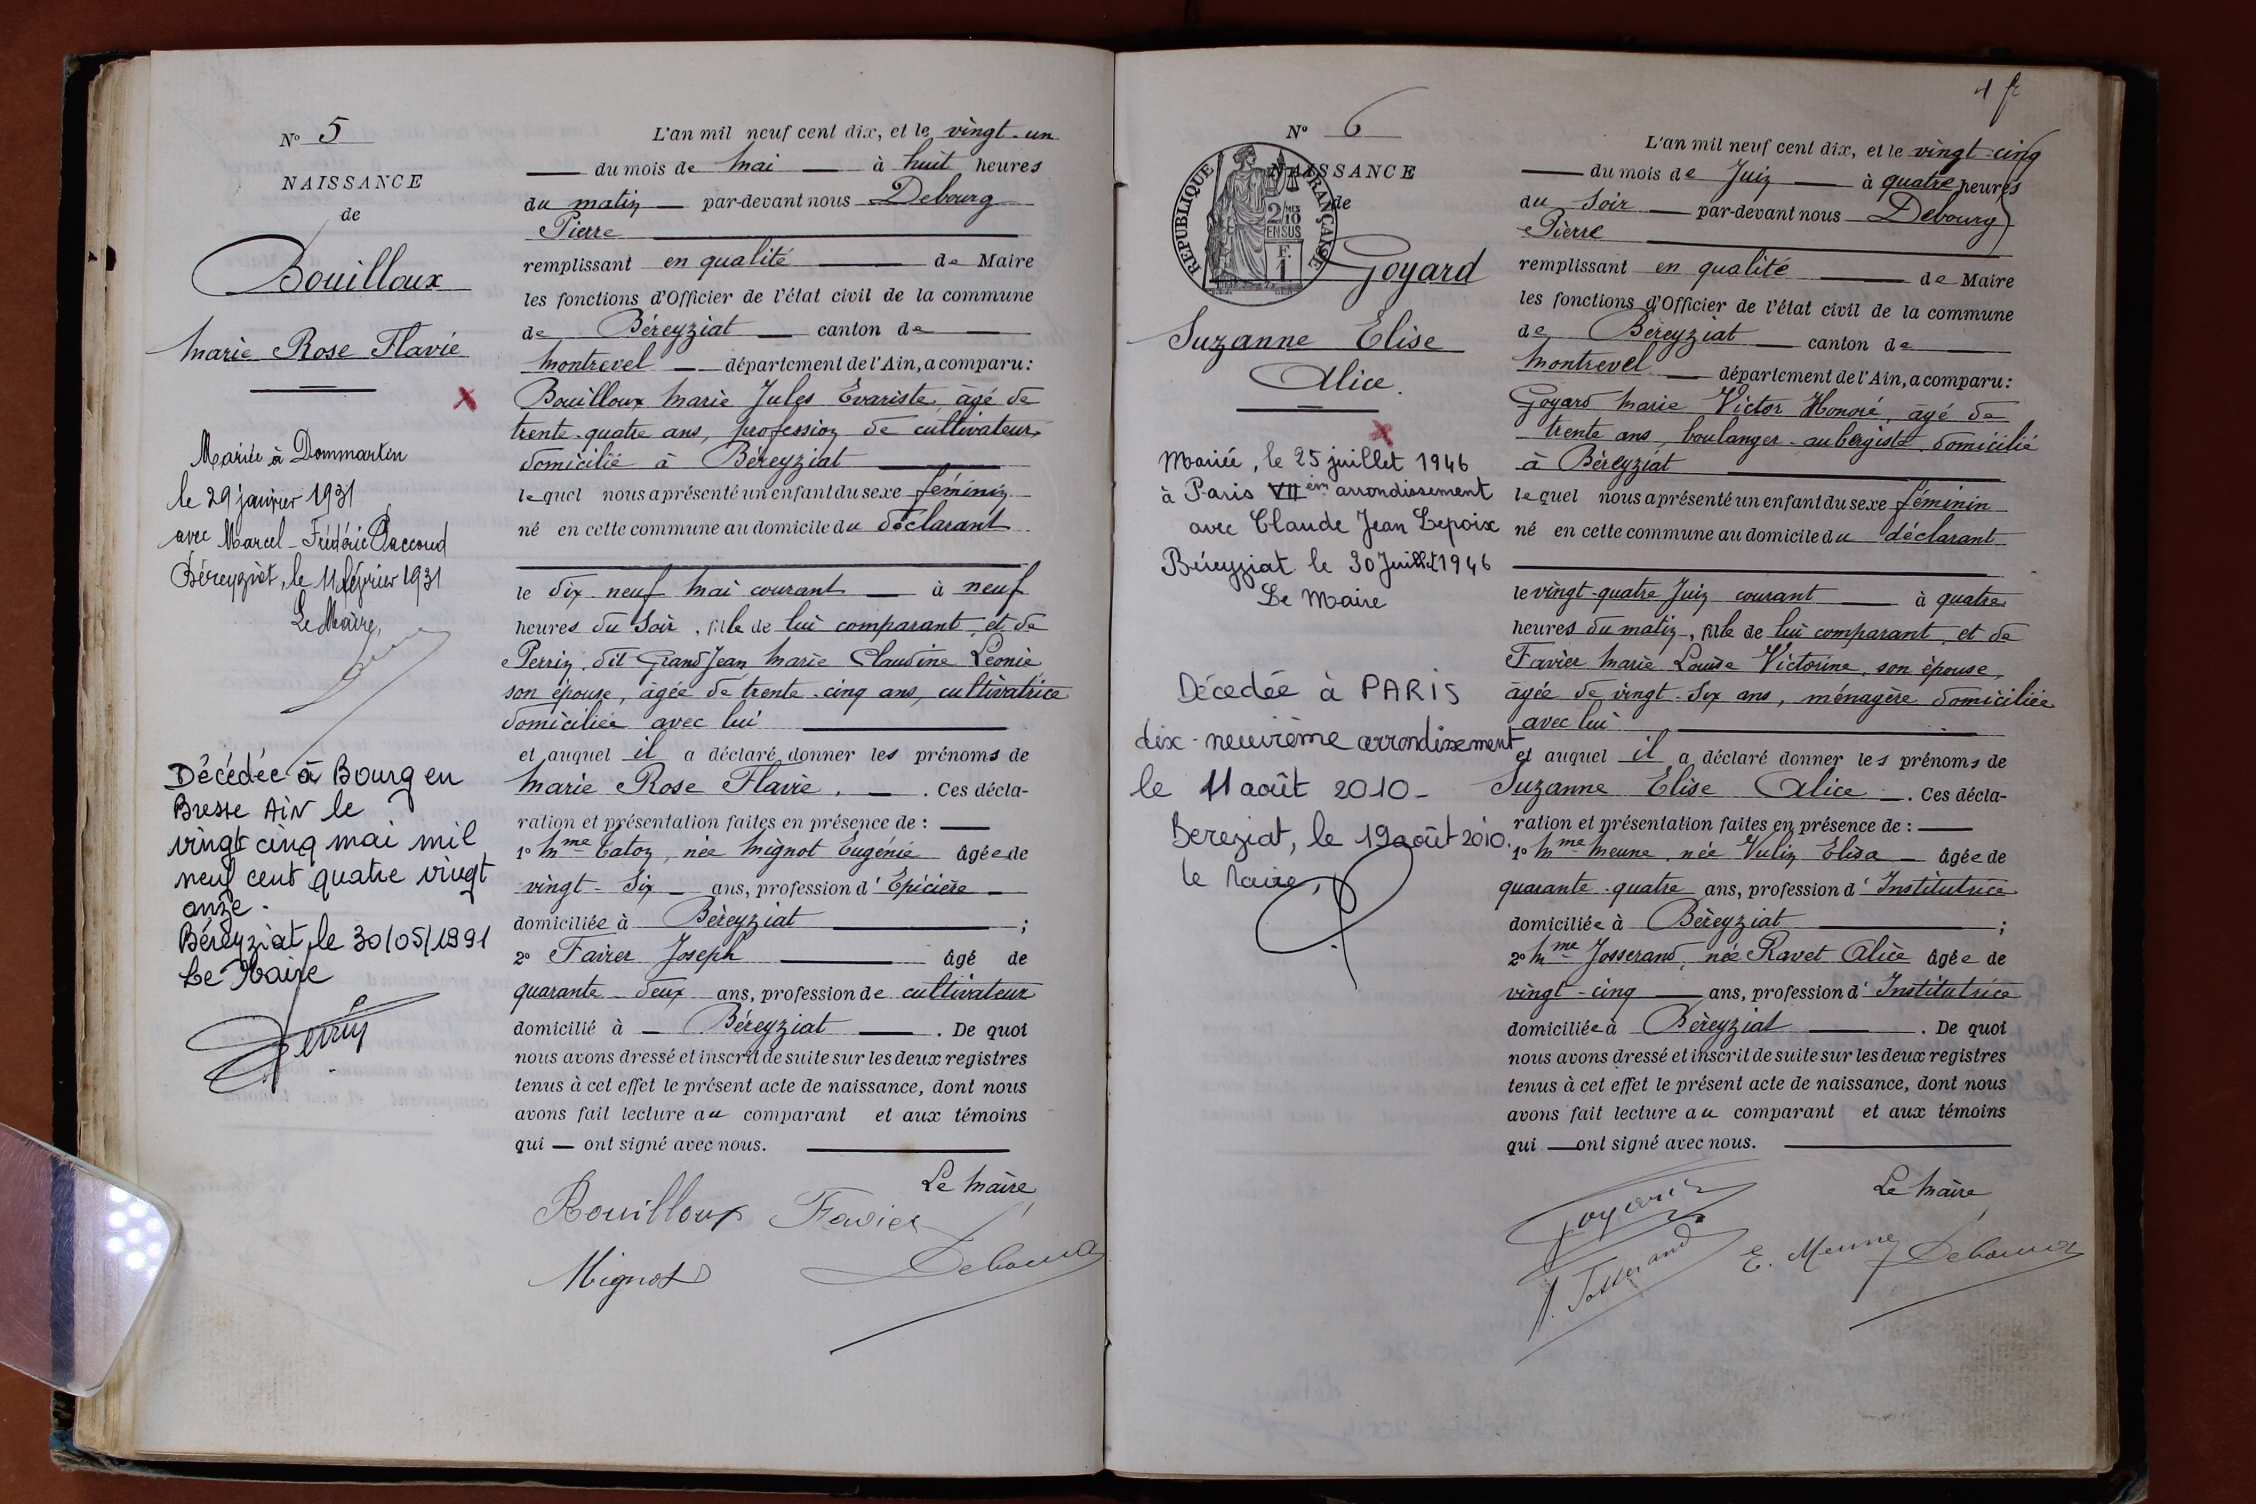 N° 5
NAISSANCE
de
Bouilloux
Marie Rose Flavie
Mariée à Dommartin
le 29 janvier 1931
avec Marcel-Frédéric Paccoud
Béreyziat, le 11 février 1931
Le Maire,
Décédée à Bourg en
Bresse AIN le
vingt cinq mai mil
neuf cent quatre vingt
onze.
Béreyziat, le 30/05/1991
Le Maire
Perrin
L'an mil neuf cent dix, et le vingt-un
du mois de Mai à huit heures
du matin par-devant nous Debourg
Pierre
remplissant en qualité de Maire
les fonctions d'Officier de l'état civil de la commune
de Béreyziat canton de
Montrevel département de l'Ain, a comparu:
Bouilloux Marie Jules Evariste, âgé de
trente-quatre ans, profession de cultivateur,
domicilié à Béreyziat
lequel nous a présenté un enfant du sexe féminin
né en cette commune au domicile du déclarant
le dix-neuf Mai courant à neuf
heures du soir, fille de lui comparant et de
Perrin dit Grand Jean Marie Claudine Léonie
son épouse, âgée de trente-cinq ans, cultivatrice
domiciliée avec lui
et auquel il a déclaré donner les prénoms de
Marie Rose Flavie. . Ces décla-
ration et présentation faites en présence de :
1° Mme Caton, née Mignot Eugénie âgée de
vingt-six ans, profession d'Epicière
domiciliée à Béreyziat ;
2° Favier Joseph âgé de
quarante-deux ans, profession de cultivateur
domicilié à Béreyziat . De quoi
nous avons dressé et inscrit de suite sur les deux registres
tenus à cet effet le présent acte de naissance, dont nous
avons fait lecture au comparant et aux témoins
qui ont signé avec nous.
Le Maire,
Bouilloux Favier
Mignot Debourg
4 fr
N° 6
NAISSANCE
de
REPUBLIQUE FRANÇAISE
2/10
EN SUS
F.
1
Goyard
Suzanne Elise
Alice.
Mariée, le 25 juillet 1946
à Paris VIIème arrondissement
avec Claude Jean Lepoix
Béreyziat le 30 Juillet 1946
Le Maire
Décédée à PARIS
dix-neuvième arrondissement
le 11 août 2010-
Bereziat, le 19 août 2010.
Le Maire,
L'an mil neuf cent dix, et le vingt-cinq
du mois de Juin à quatre heures
du soir par-devant nous Debourg
Pierre
remplissant en qualité de Maire
les fonctions d'Officier de l'état civil de la commune
de Béreyziat canton de
Montrevel département de l'Ain, a comparu:
Goyard Marie Victor Honoré, âgé de
trente ans, boulanger-aubergiste, domicilié
à Béreyziat
lequel nous a présenté un enfant du sexe féminin
né en cette commune au domicile du déclarant
le vingt-quatre Juin courant à quatre
heures du matin, fille de lui comparant et de
Favier Marie Louise Victorine, son épouse,
âgée de vingt-six ans, ménagère domiciliée
avec lui
et auquel il a déclaré donner les prénoms de
Suzanne Elise Alice . Ces décla-
ration et présentation faites en présence de :
1° Mme Meune, née Vulin Elisa âgée de
quarante-quatre ans, profession d'Institutrice
domiciliée à Béreyziat ;
2° Mme Josserand, née Ravet Alice âgée de
vingt-cinq ans, profession d'Institutrice
domiciliée à Béreyziat . De quoi
nous avons dressé et inscrit de suite sur les deux registres
tenus à cet effet le présent acte de naissance, dont nous
avons fait lecture au comparant et aux témoins
qui ont signé avec nous.
Le Maire,
Goyard
A. Josserand E. Meune Debourg